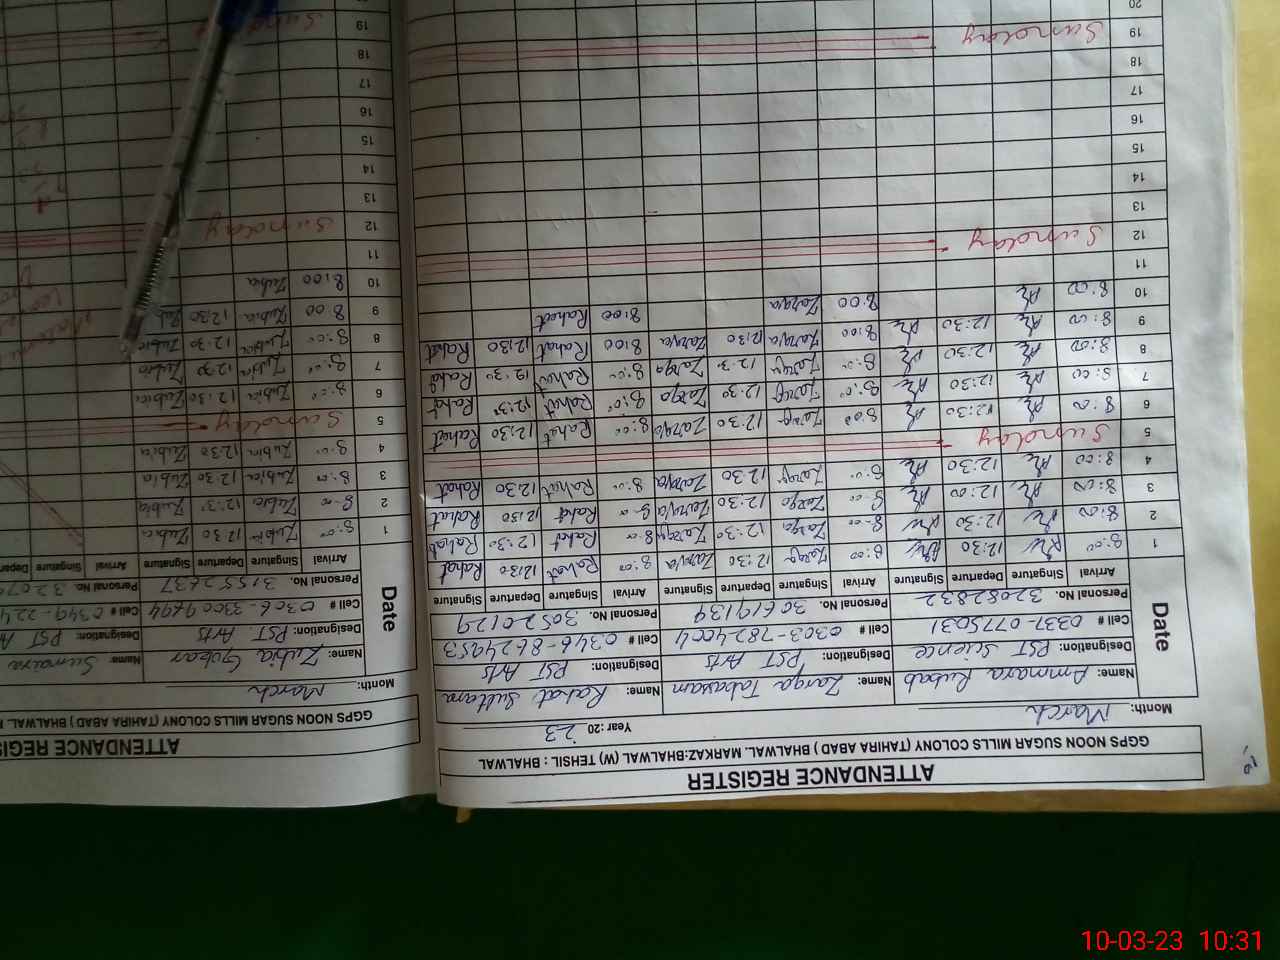 ATTENDANCE REGISTER
GGPS NOON SUGAR MILLS COLONY (TAHIRA ABAD ) BHALWAL. MARKAZ:BHALWAL (W) TEHSIL : BHALWAL
Month: March Year: 20 23
Date Name: Ammara Rubab Name: Zarqa Tabassam Name: Rahat Sultana
Designation: PST Science Designation: PST Arts Designation: PST Arts
Cell # 0331-0775031 Cell # 0303-7824004 Cell # 0346-8624953
Personal No. 32082832 Personal No. 30619139 Personal No. 30520129
Arrival Singature Departure Signature Arrival Singature Departure Signature Arrival Singature Departure Signature
1 8:00 12:30 8:00 Zarqa 12:30 Zarqa 8:00 Rahat 12:30 Rahat
2 8:00 12:30 8:00 Zarqa 12:30 Zarqa 8:00 Rahat 12:30 Rahat
3 8:00 12:00 8:00 Zarqa 12:30 Zarqa 8:00 Rahat 12:30 Rahat
4 8:00 12:30 8:00 Zarqa 12:30 Zarqa 8:00 Rahat 12:30 Rahat
5 Sunday
6 8:00 12:30 8:00 Zarqa 12:30 Zarqa 8:00 Rahat 12:30 Rahat
7 8:00 12:30 8:00 Zarqa 12:30 Zarqa 8:00 Rahat 12:30 Rahat
8 8:00 12:30 8:00 Zarqa 12:30 Zarqa 8:00 Rahat 12:30 Rahat
9 8:00 12:30 8:00 Zarqa 12:30 Zarqa 8:00 Rahat 12:30 Rahat
10 8:00 8:00 Zarqa 8:00 Rahat
11
12 Sunday
13
14
15
16
17
18
19 Sunday
20
ATTENDANCE REGIS
GGPS NOON SUGAR MILLS COLONY (TAHIRA ABAD ) BHALWAL.
Month: March
Date Name: Zubia Name: Sumaira
Designation: PST. Arts Designation: PST A
Cell # 0306-3309694 Cell # 0349-224
Personal No. 31552637 Personal No. 3207
Arrival Singature Departure Signature Arrival Singature Depar
1 8:00 Zubia 12:30 Zubia
2 8:00 Zubia 12:30 Zubia
3 8:00 Zubia 12:30 Zubia
4 8:00 Zubia 12:30 Zubia
5 Sunday
6 8:00 Zubia 12:30 Zubia
7 8:00 Zubia 12:30 Zubia
8 8:00 Zubia 12:30 Zubia
9 8:00 Zubia 12:30
10 8:00 Zubia
11
12 Sunday
13
14
15
16
17
18
19
10-03-23 10:31